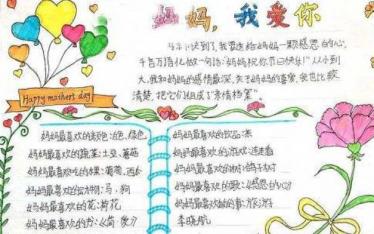 妈妈,我爱你
5.11快到了,我要送给妈妈一颗感恩的心,
千言万语化做一句话:“妈妈祝你节日快乐!”从小到
大,我和妈妈的感情最深,关于妈妈的喜爱,我也比较
清楚,把它们组成了“亲情档案”
Happy mother's day
妈妈最喜欢的颜色:白色,绿色
妈妈最喜欢的蔬菜:土豆,蘑菇
妈妈最喜欢吃的水果:葡萄、西瓜
妈妈最喜欢的动物:马、狗
妈妈最喜欢的花:荷花
妈妈最喜欢的书:《简·爱》
妈妈最喜欢的饮品:茶
妈妈最喜欢的游戏:连连看
妈妈最喜欢的树:鸽子树
妈妈最喜欢的歌:《感恩的心》
妈妈最喜欢做的事:旅游
李晓航